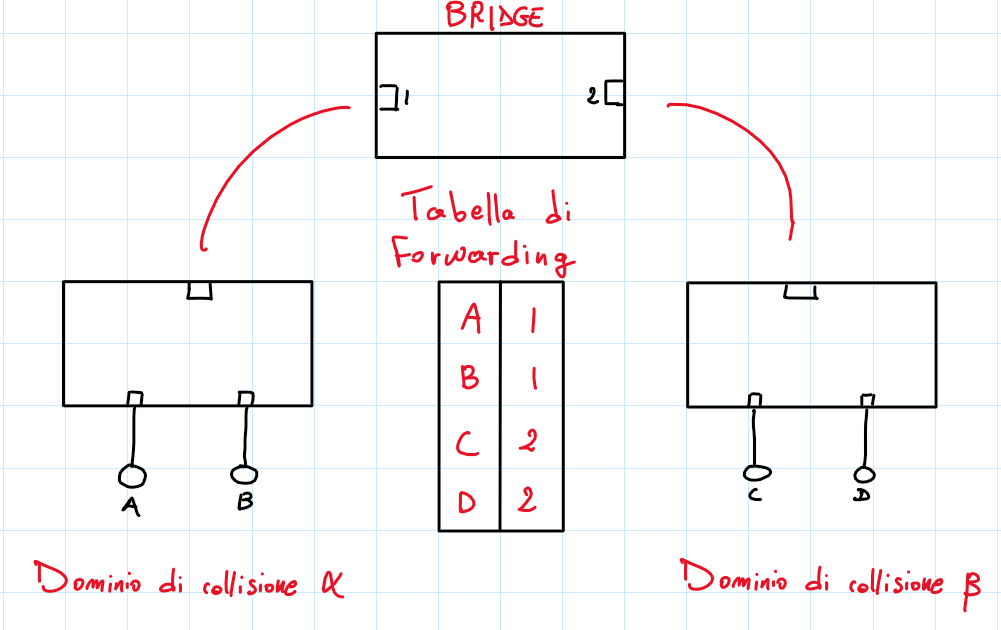 BRIDGE
1 2
Tabella di
Forwarding
A 1
B 1
C 2
D 2
A B
C D
Dominio di collisione α
Dominio di collisione β